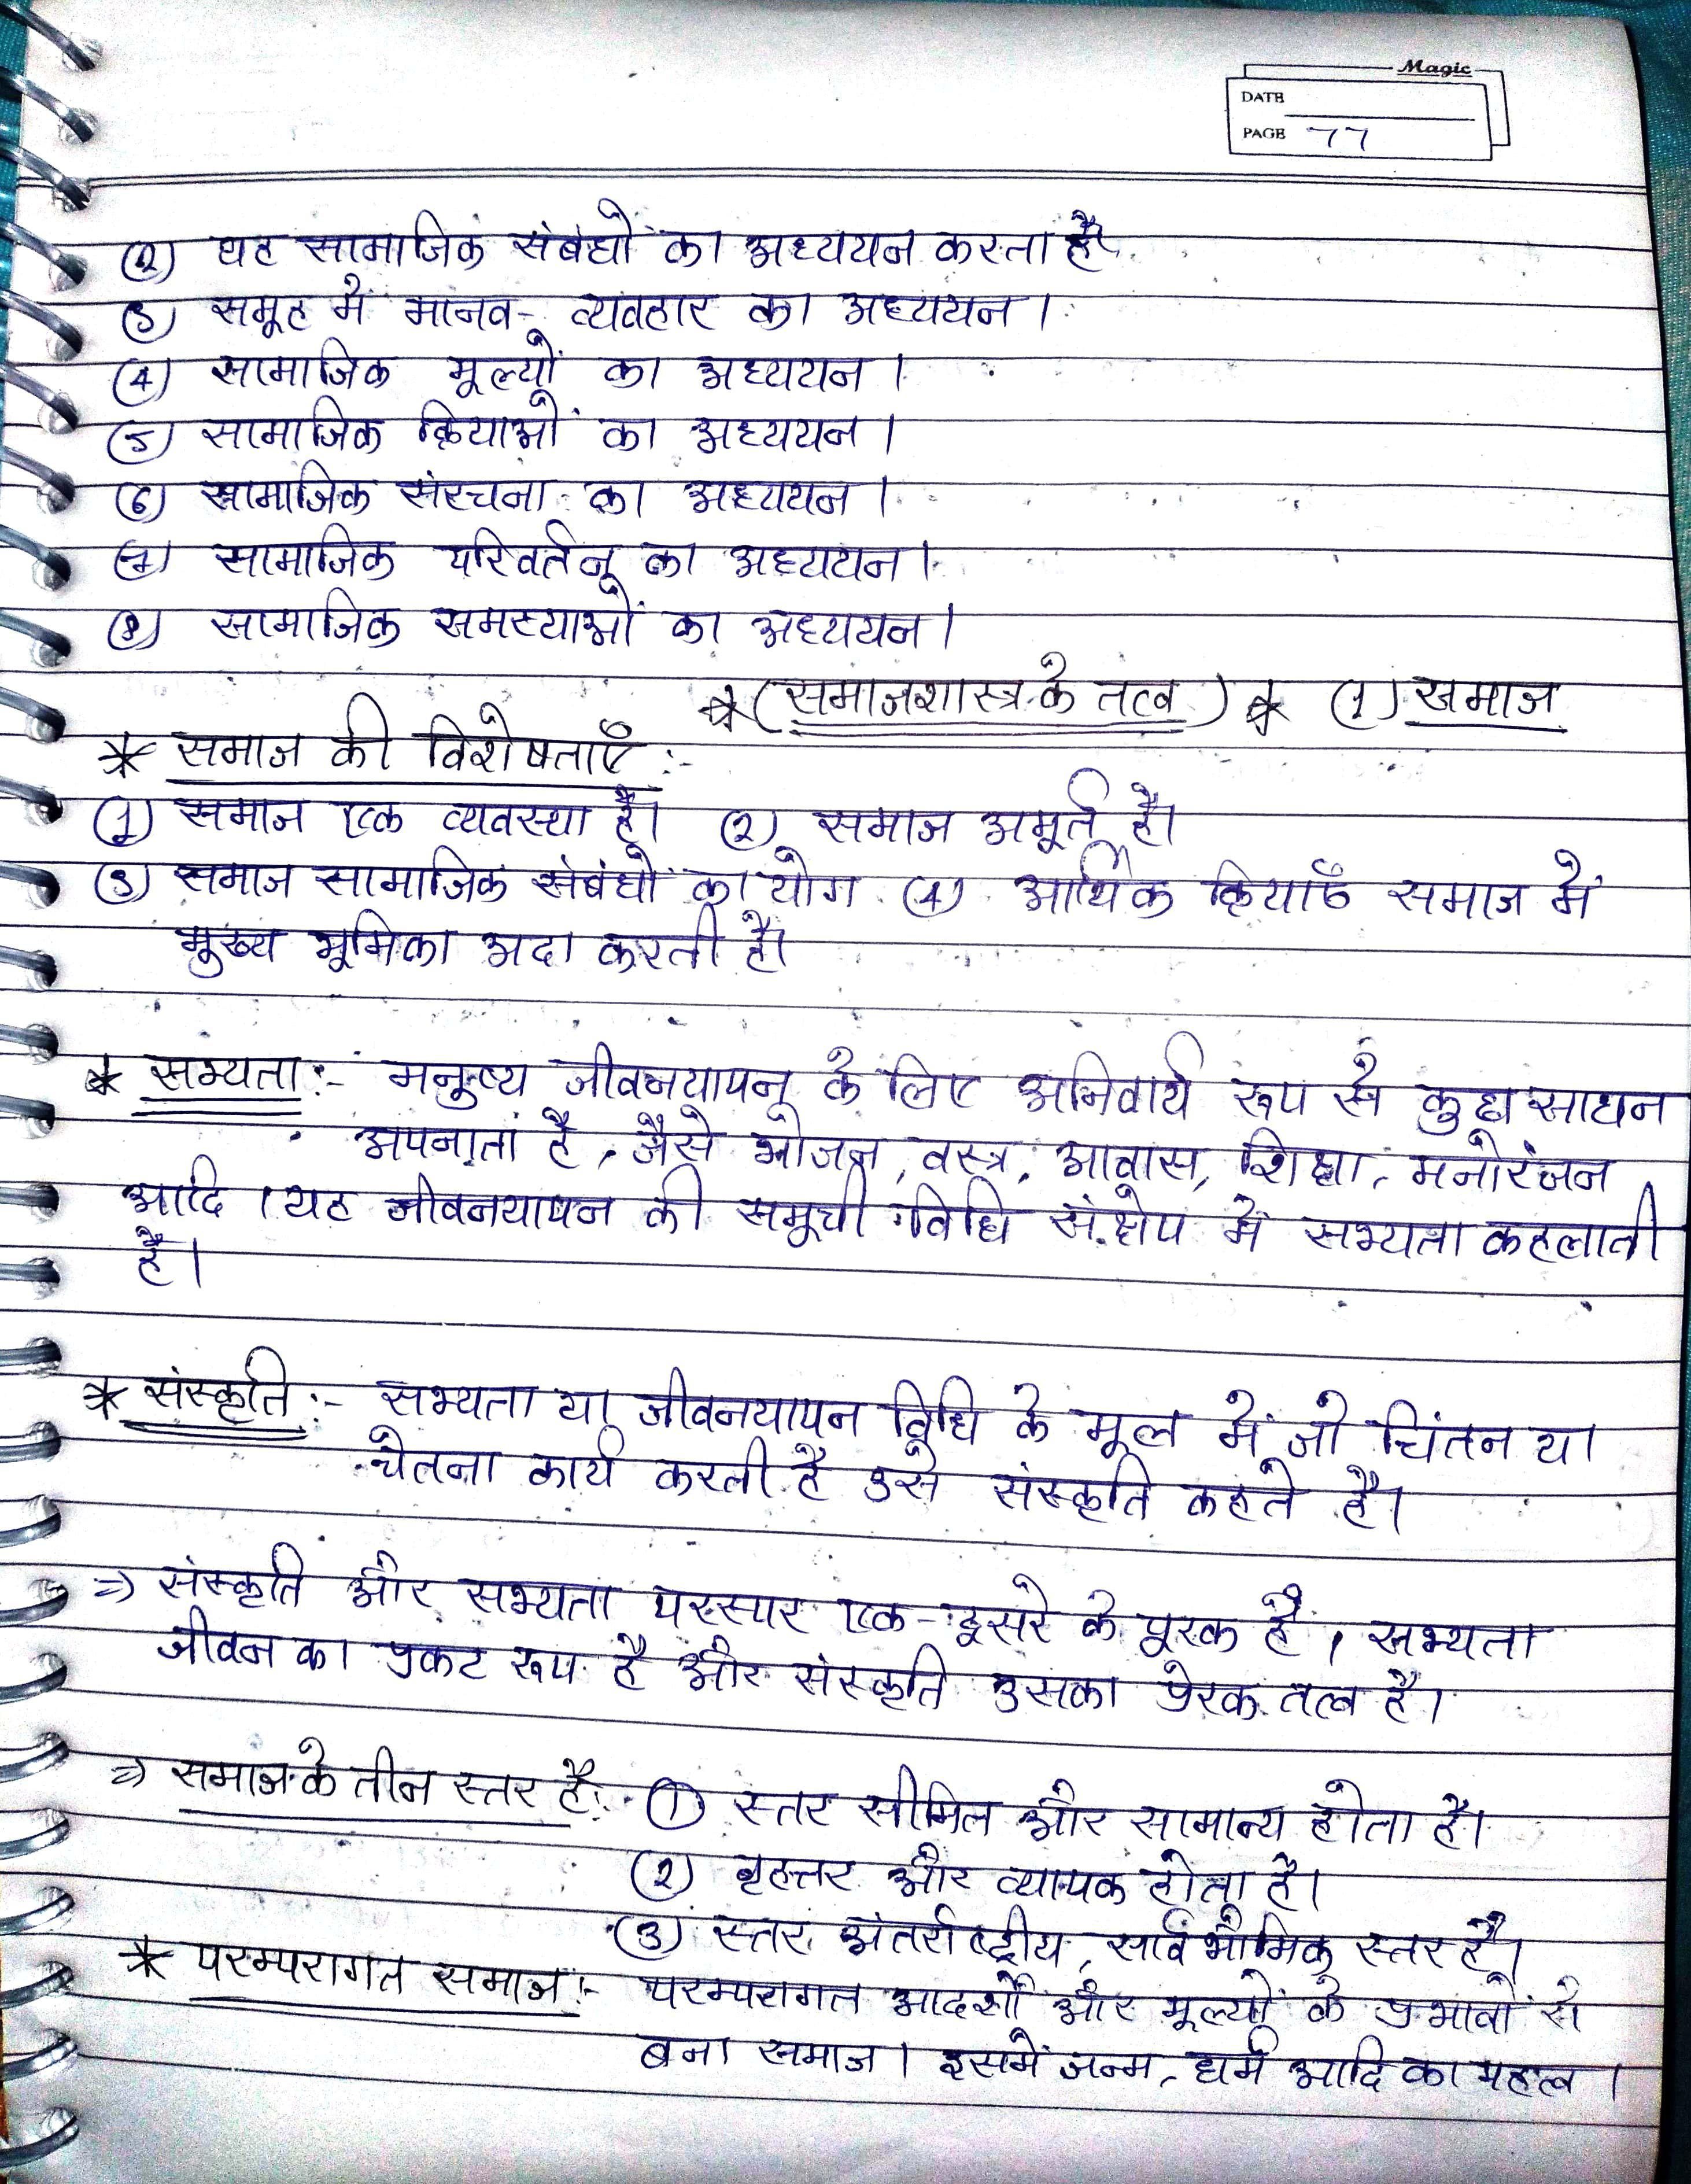 Magic
DATE
PAGE 77
(2) यह सामाजिक संबंधों का अध्ययन करता है
(3) समूह में मानव- व्यवहार का अध्ययन।
(4) सामाजिक मूल्यों का अध्ययन।
(5) सामाजिक क्रियाओं का अध्ययन।
(6) सामाजिक संरचना का अध्ययन।
(7) सामाजिक परिवर्तन का अध्ययन।
(8) सामाजिक समस्याओं का अध्ययन।
* (समाजशास्त्र के तत्व) * (1) समाज
* समाज की विशेषताएँ :-
(1) समाज एक व्यवस्था है। (2) समाज अमूर्त है।
(3) समाज सामाजिक संबंधों का योग (4) आर्थिक क्रियाएँ समाज में
मुख्य भूमिका अदा करती है।
* सभ्यता :- मनुष्य जीवनयापन के लिए अनिवार्य रूप से कुछ साधन
अपनाता है, जैसे भोजन, वस्त्र, आवास, शिक्षा, मनोरंजन
आदि। यह जीवनयापन की समूची विधि संक्षेप में सभ्यता कहलाती
है।
* संस्कृति :- सभ्यता या जीवनयापन विधि के मूल में जो चिंतन या
चेतना कार्य करती है उसे संस्कृति कहते है।
=> संस्कृति और सभ्यता परस्पर एक-दूसरे के पूरक है, सभ्यता
जीवन का प्रकट रूप है और संस्कृति उसका प्रेरक तत्व है।
=> समाज के तीन स्तर है:- (1) स्तर सीमित और सामान्य होता है।
(2) बृहत्तर और व्यापक होता है।
(3) स्तर अंतर्राष्ट्रीय, सार्वभौमिक स्तर है।
* परम्परागत समाज :- परम्परागत आदर्शों और मूल्यों के प्रभावों से
बना समाज। इसमें जन्म, धर्म आदि का महत्व।